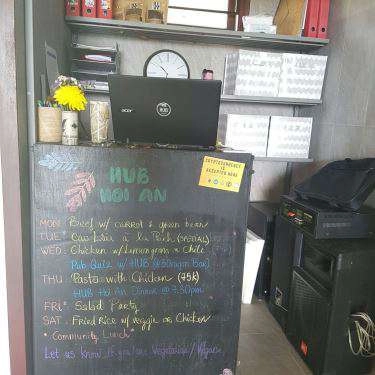 acer
HUB
HUB
HOI AN
CRYPTOCURRENCY
IS
ACCEPTED HERE
MON: Beef w/ carrot & green bean
TUE: Cao Lau a la Pork (SPECIAL)
WED: Chicken w/ Lemongrass & Chili
Pub Quiz w/ HUB @ Dragon Bar
THU: Pasta with Chicken (75k)
HUB Hoi An Dinner @ 7.30pm
FRI: Salad Party
SAT: Fried Rice w/ veggie or Chicken
* Community Lunch *
Let us know if you're Vegetarian / Vegan